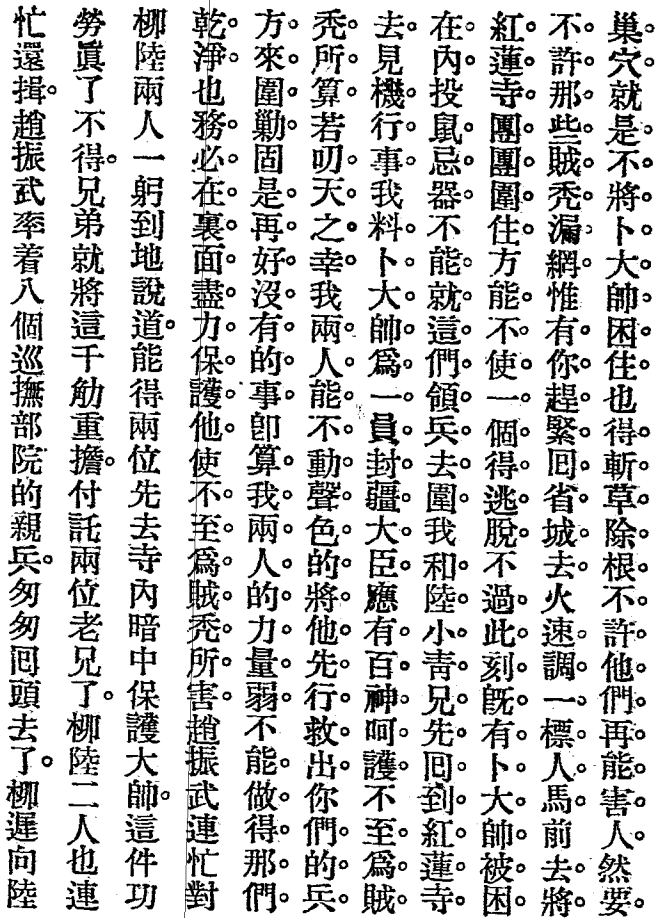 巢穴就是不將卜大帥困住也得斬草除根不許他們再能害人然要
不許那些賊禿漏網惟有你趕緊囘省城去火速調一標人馬前去將
紅蓮寺團團圍住方能不使一個得逃脫不過此刻旣有卜大帥被困
在內投鼠忌器不能就這們領兵去圍我和陸小靑兄先囘到紅蓮寺
去見機行事我料卜大帥爲一員封疆大臣應有百神呵護不至爲賊
禿所算若叨天之幸我兩人能不動聲色的將他先行救出你們的兵
方來圍勦固是再好沒有的事卽算我兩人的力量弱不能做得那們
乾淨也務必在裏面盡力保護他使不至爲賊禿所害。趙振武連忙對
柳陸兩人一躬到地說道。能得兩位先去寺內暗中保護大帥。這件功
勞眞了不得。兄弟就將這千觔重擔。付託兩位老兄了。柳陸二人也連
忙還揖。趙振武率着八個巡撫部院的親兵。匆匆囘頭去了。柳遲向陸